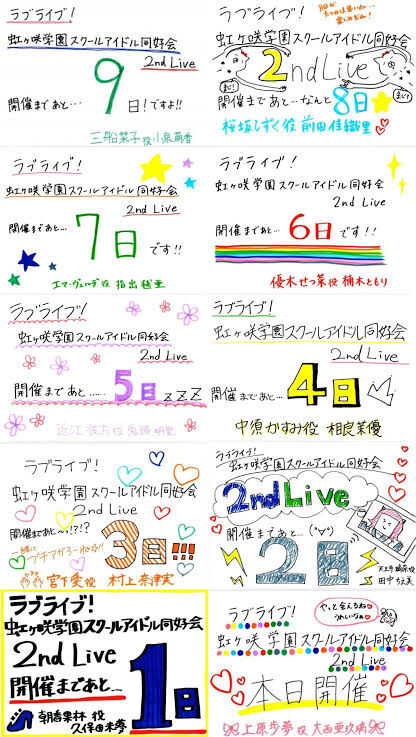 ラブライブ!
虹ヶ咲学園スクールアイドル同好会
2nd Live
開催まであと…
9日!ですよ!!
三船栞子役 小泉萌香
ラブライブ!
虹ヶ咲学園スクールアイドル同好会
2nd Live
開催まであと…なんと
8日
桜坂しずく役 前田佳織里
ラブライブ!
虹ヶ咲学園スクールアイドル同好会
2nd Live
開催まであと…
7日です!!
エマ・ヴェルデ役 指出毬亜
ラブライブ!
虹ヶ咲学園スクールアイドル同好会
2nd Live
開催まであと…
6日です!!
優木せつ菜役 楠木ともり
ラブライブ!
虹ヶ咲学園スクールアイドル同好会
2nd Live
開催まであと……
5日 zzz
近江彼方役 鬼頭明里
ラブライブ!
虹ヶ咲学園スクールアイドル同好会
2nd Live
開催まであと…
4日
中須かすみ役 相良茉優
ラブライブ!
虹ヶ咲学園スクールアイドル同好会
2nd Live
開催まであと…!?!?
3日!!!
一緒に
宮下愛役 村上奈津実
ラブライブ!
虹ヶ咲学園スクールアイドル同好会
2nd Live
開催まであと…
2日
天王寺璃奈役
田中ちえ美
ラブライブ!
虹ヶ咲学園スクールアイドル同好会
2nd Live
開催まであと…
1日
朝香果林 役
久保田未夢
やっと会えるね
ラブライブ!
虹ヶ咲学園スクールアイドル同好会
2nd Live
本日開催
上原歩夢役 大西亜玖璃